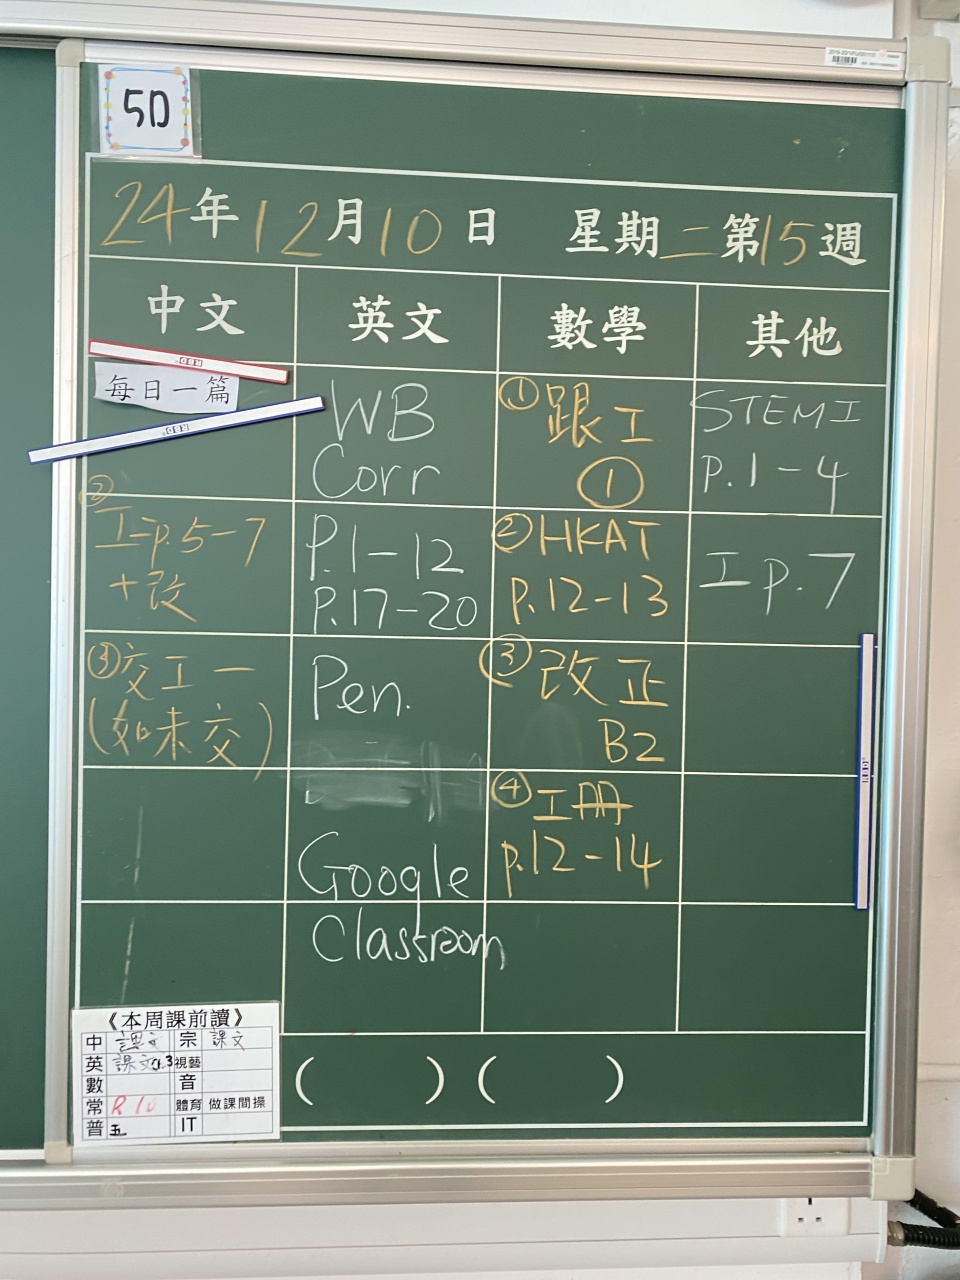 5D
24年12月10日 星期二第15週
中文 英文 數學 其他
每日一篇
②
工二p.5-7
+改
③交工一
(如未交)
WB
Corr
P.1-12
P.17-20
Pen.
Google
Classroom
①跟工
①
②HKAT
p.12-13
③改正
B2
④工冊
p.12-14
STEM工
p.1-4
工p.7
《本周課前讀》
中 課文 宗 課文
英 課文 視藝
數 音
常 R10 體育 做課間操
普 五 IT
( ) ( )